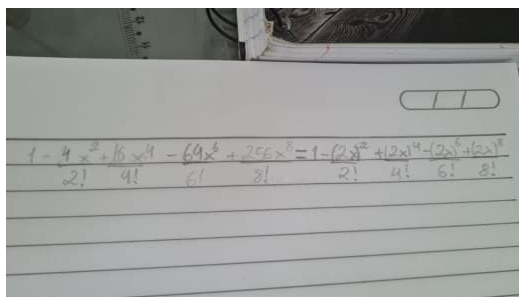 1 - 4x²/2! + 16x⁴/4! - 64x⁶/6! + 256x⁸/8! = 1 - (2x)²/2! + (2x)⁴/4! - (2x)⁶/6! + (2x)⁸/8!